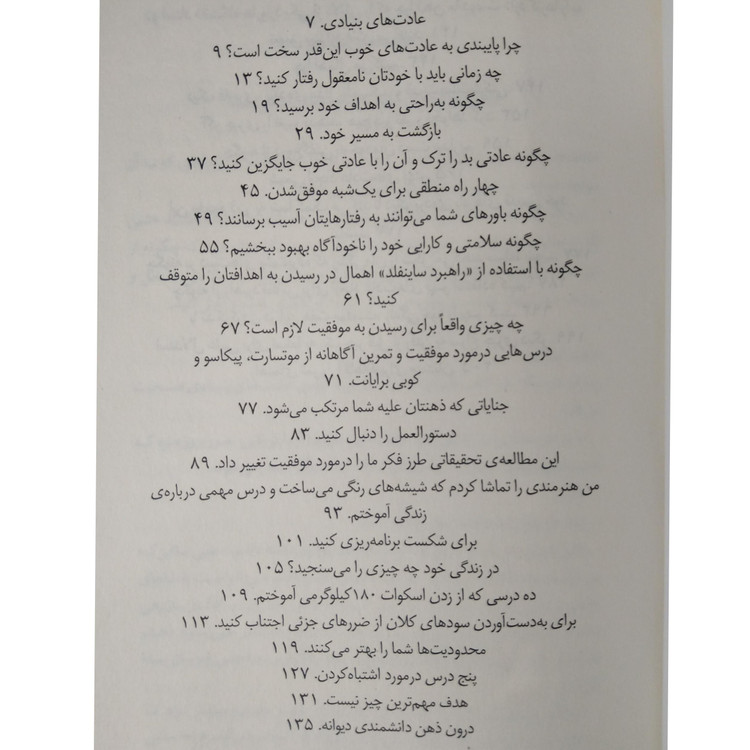 عادت‌های بنیادی. ۷
چرا پایبندی به عادت‌های خوب این‌قدر سخت است؟ ۹
چه زمانی باید با خودتان نامعقول رفتار کنید؟ ۱۳
چگونه به‌راحتی به اهداف خود برسید؟ ۱۹
بازگشت به مسیر خود. ۲۹
چگونه عادتی بد را ترک و آن را با عادتی خوب جایگزین کنید؟ ۳۷
چهار راه منطقی برای یک‌شبه موفق‌شدن. ۴۵
چگونه باورهای شما می‌توانند به رفتارهایتان آسیب برسانند؟ ۴۹
چگونه سلامتی و کارایی خود را ناخودآگاه بهبود ببخشیم؟ ۵۵
چگونه با استفاده از «راهبرد ساینفلد» اهمال در رسیدن به اهدافتان را متوقف
کنید؟ ۶۱
چه چیزی واقعاً برای رسیدن به موفقیت لازم است؟ ۶۷
درس‌هایی درمورد موفقیت و تمرین آگاهانه از موتسارت، پیکاسو و
کوبی برایانت. ۷۱
جنایاتی که ذهنتان علیه شما مرتکب می‌شود. ۷۷
دستورالعمل را دنبال کنید. ۸۳
این مطالعه‌ی تحقیقاتی طرز فکر ما را درمورد موفقیت تغییر داد. ۸۹
من هنرمندی را تماشا کردم که شیشه‌های رنگی می‌ساخت و درس مهمی درباره‌ی
زندگی آموختم. ۹۳
برای شکست برنامه‌ریزی کنید. ۱۰۱
در زندگی خود چه چیزی را می‌سنجید؟ ۱۰۵
ده درسی که از زدن اسکوات ۱۸۰کیلوگرمی آموختم. ۱۰۹
برای به‌دست‌آوردن سودهای کلان از ضررهای جزئی اجتناب کنید. ۱۱۳
محدودیت‌ها شما را بهتر می‌کنند. ۱۱۹
پنج درس درمورد اشتباه‌کردن. ۱۲۷
هدف مهم‌ترین چیز نیست. ۱۳۱
درون ذهن دانشمندی دیوانه. ۱۳۵